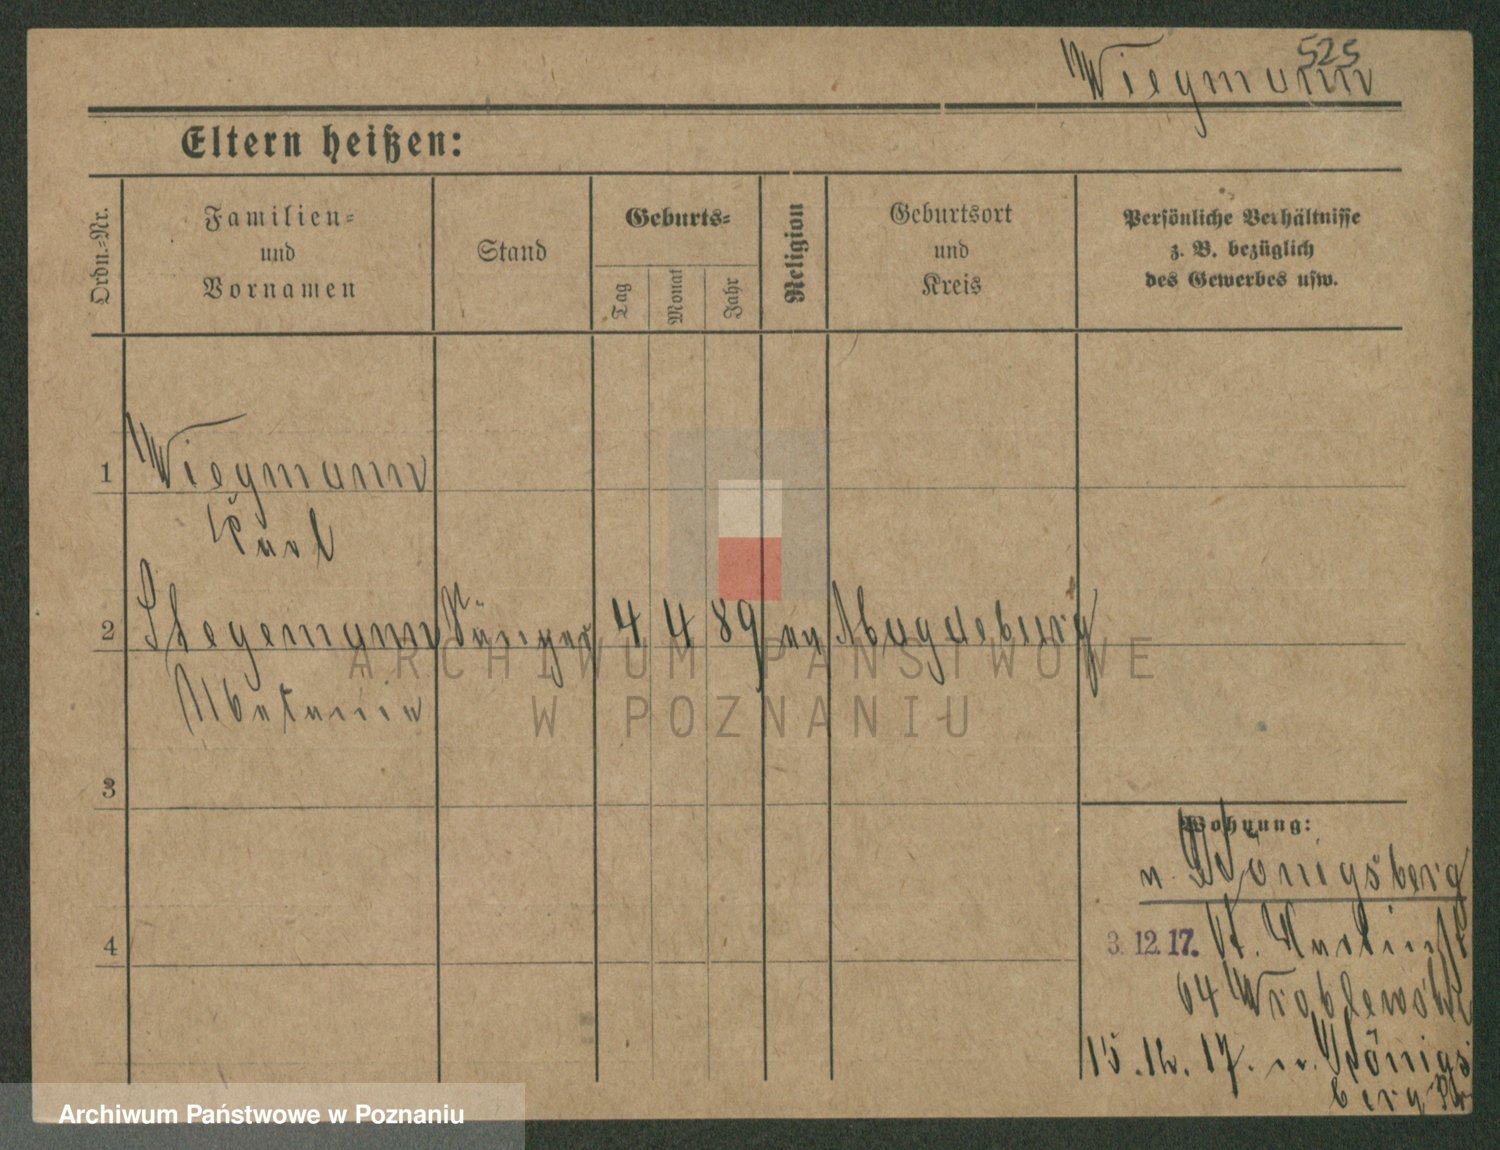 525
Wiegmann
Eltern heißen:
Ordn.=Nr.
Familien=
und
Vornamen
Stand
Geburts=
Tag
Monat
Jahr
Religion
Geburtsort
und
Kreis
Persönliche Verhältnisse
z. B. bezüglich
des Gewerbes usw.
1 Wiegmann
Karl
2 Stegemann Sänger 4 4 89 ev Magdeburg
3
4
Wohnung:
v. Königsberg
3. 12. 17. St. Martinst
64 Wroblewski
15. 12. 17. n. Königs
berg Pr
ARCHIWUM PAŃSTWOWE
W POZNANIU
Archiwum Państwowe w Poznaniu